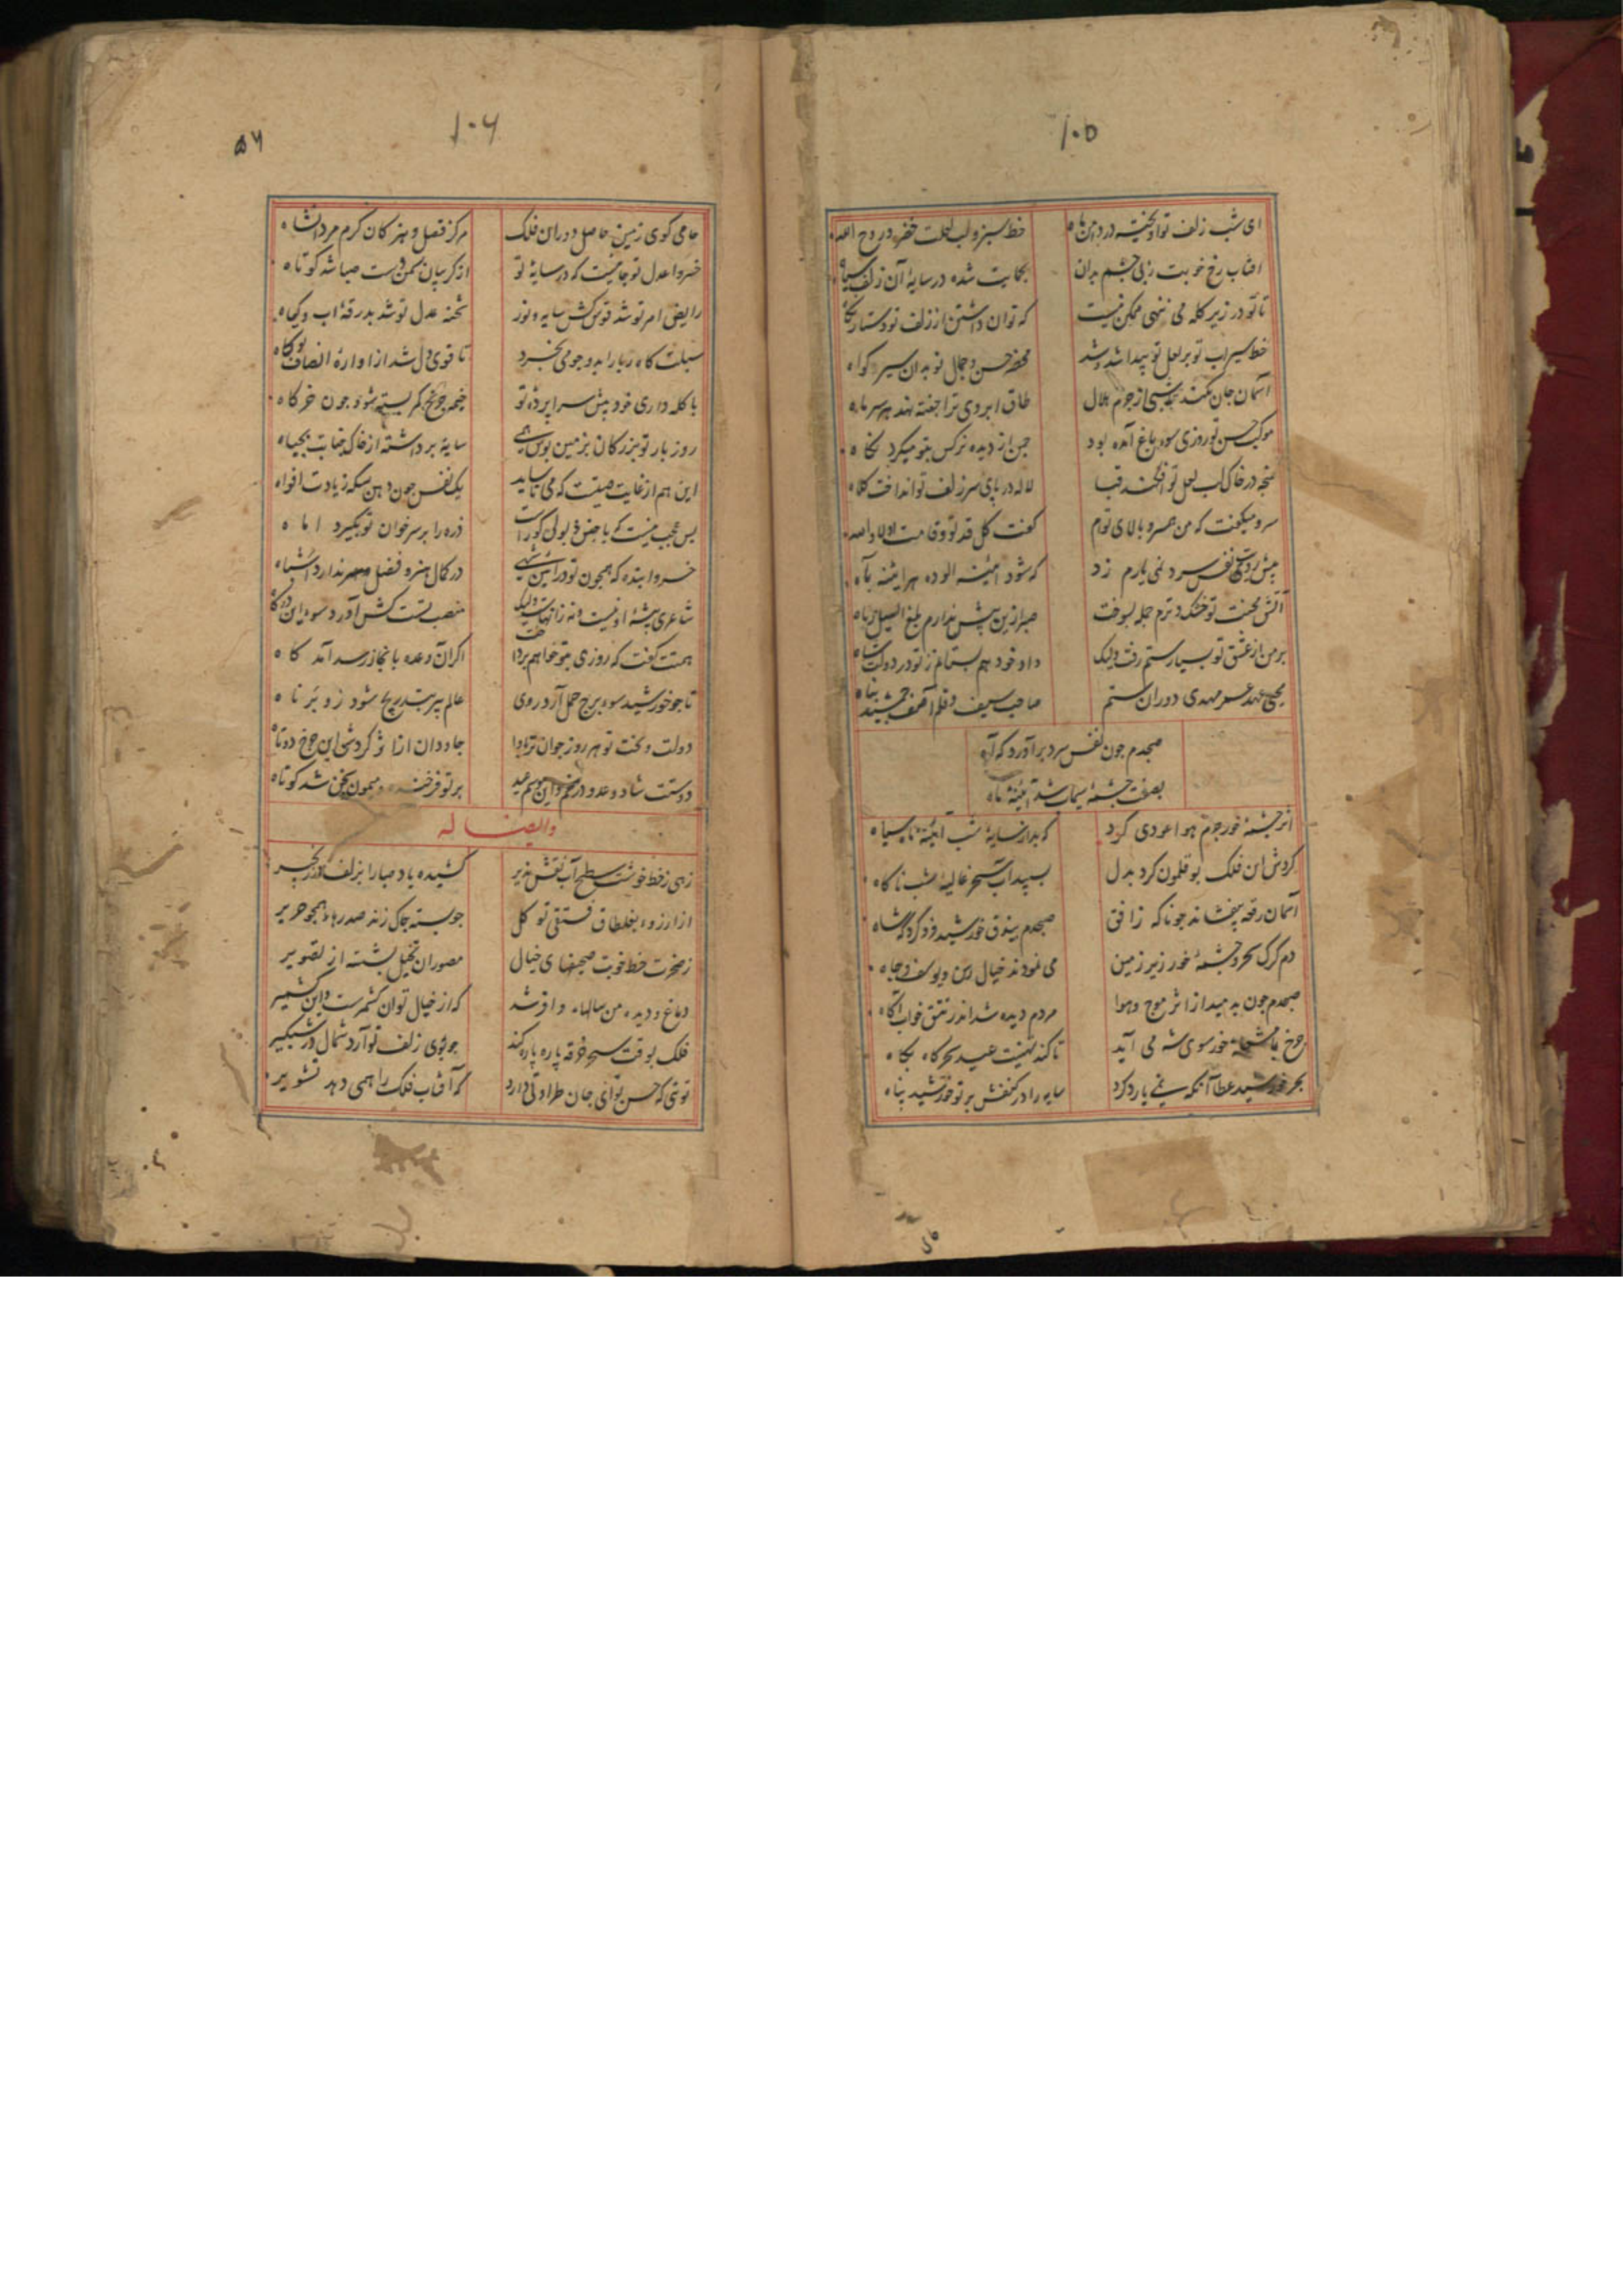 ۱۰۵
ای شب زلف تو آویخته در دامن ماه
خط سبز و لب لعلت خضر و روح الله
افتاب رخ خوبت زپی چشم بدان
بحمایت شده در سایهٔ آن زلف سیاه
تا تو در زیر کله می ننهی ممکن نیست
که توان داشتن از زلف تو دستار نکاه
خط سیراب تو بر لعل تو پیدا شد و شد
محضر حسن و جمال تو بدان سبز کواه
آسمان جان بکند از جرم هلال
طاق ابروی ترا جفته نهد بر سر ماه
موکب حسن تو روزی سوی باغ آمده بود
چمن از دیده نرکس بتو میکرد نکاه
غنچه در خاک لب لعل تو افکند قبا
لاله در پای سر زلف تو انداخت کلاه
سرو میکفت که من همسر و بالای توام
کفت کل قد تو و قامت او لا والله
پیش رویت نفس سرد نمی یارم زد
که شود آئینه الوده هر ایینه باه
آتش محنت تو خشک و ترم جمله بسوخت
صبر ازین پیش ندارم بلغ السیل زباه
بر من از عشق تو بسیار ستم رفت ولیک
داد خود هم بستانم ز تو در دولت شاه
محیی عهد عمر مهدی دوران ستم
صاحب سیف و قلم آصف جمشید پناه
صبحدم چون نفس سرد برآورد که آه
بصفت چشمهٔ سیماب شد آئینهٔ ماه
اثر چشمهٔ خور جرم هوا عودی کرد
که بد از سایهٔ شب آینهٔ تاب سیاه
کردش این فلک بوقلمون کرد بدل
بسپیداب سحر غالیهٔ شب ناکاه
آسمان رقعه بیفشاند چو ناکه ز افق
صبحدم بیذق خورشید فرو کرد
دم کرک سحر و چشمهٔ خور زیر زمین
می نمودند خیال رسن و یوسف و چاه
صبحدم چون از اثر موج هوا
مردم دیده شد اندر تتق خواب آکاه
چرخ با خور سوی شه می آید
تا کند تهنیت عید سحرکاه بکاه
بحر خورشید عطا آنکه نمی یارد کرد
سایه را در کنفش پرتو خورشید پناه
۱۰۶
۵۶
حامی کوی زمین حاصل دوران فلک
مرکز فضل و هنر کان کرم مردانشاه
خسروا عدل تو جائیست که در سایهٔ تو
از کریبان سمن دست صبا شد کوتاه
رایض امر تو شد توسن کش سایه و نور
شحنه عدل تو شد بدرقهٔ اب و کیاه
سبلت کاه ربا را بدو جو می نخرد
تا قوی دل شد از اوازهٔ انصاف تو کاه
با کله داری خود پیش سرا پردهٔ تو
خیمه چرخ کمر بسته شود چون خرکاه
روز بار تو بزرکان بزمین بوس همی
سایه برداشته از خاک جنابت بجباه
این هم از غایت صیتت که می ناساید
یک نفس چون دهن سکه ز یادت افواه
بس عجب نیست که
ذره را بر سر خوان تو بگیرد اماه
خسروا بنده که همچون تو در آیین شهی
در کمال هنر و فضل ندارد اشباه
شاعری پیشهٔ او نیست و نه زانهاست ولیک
منصب تست کش آورد سوی این درکاه
همتت کفت که روزی بتو خواهم پرداخت
اکر آن وعده بانجاز رسد آمد کاه
تا چو خورشید سوی برج حمل آرد روی
عالم پیر بتدریج شود زو برناه
دولت و بخت تو هر روز جوان تر بادا
جاودان از اثر کردش این چرخ دوتاه
دوستت شاد و عدو در غم و این موسم عید
بر تو فرخنده و میمون سخن شد کوتاه
وایضا له
زهی ز خط خوشت سطح آب نقش پذیر
کشیده باد صبا را بزلف در زنجیر
از ارزوی بغلطاق فستقی تو کل
چو پسته چاک زند صدرهاء همچو حریر
ز صحرت خط خوبت صحیفهای خیال
مصوران تخیل بشسته از تصویر
دماغ و دیده من سالهاء وافر شد
که از خیال تو آن کشمرست و این کشمیر
فلک بوقت سحر خرقه پاره پاره کند
چو بوی زلف تو آرد شمال در شبکیر
توئی که حسن تو ای جان طراوتی دارد
که آفتاب فلک را همی دهد تشویر